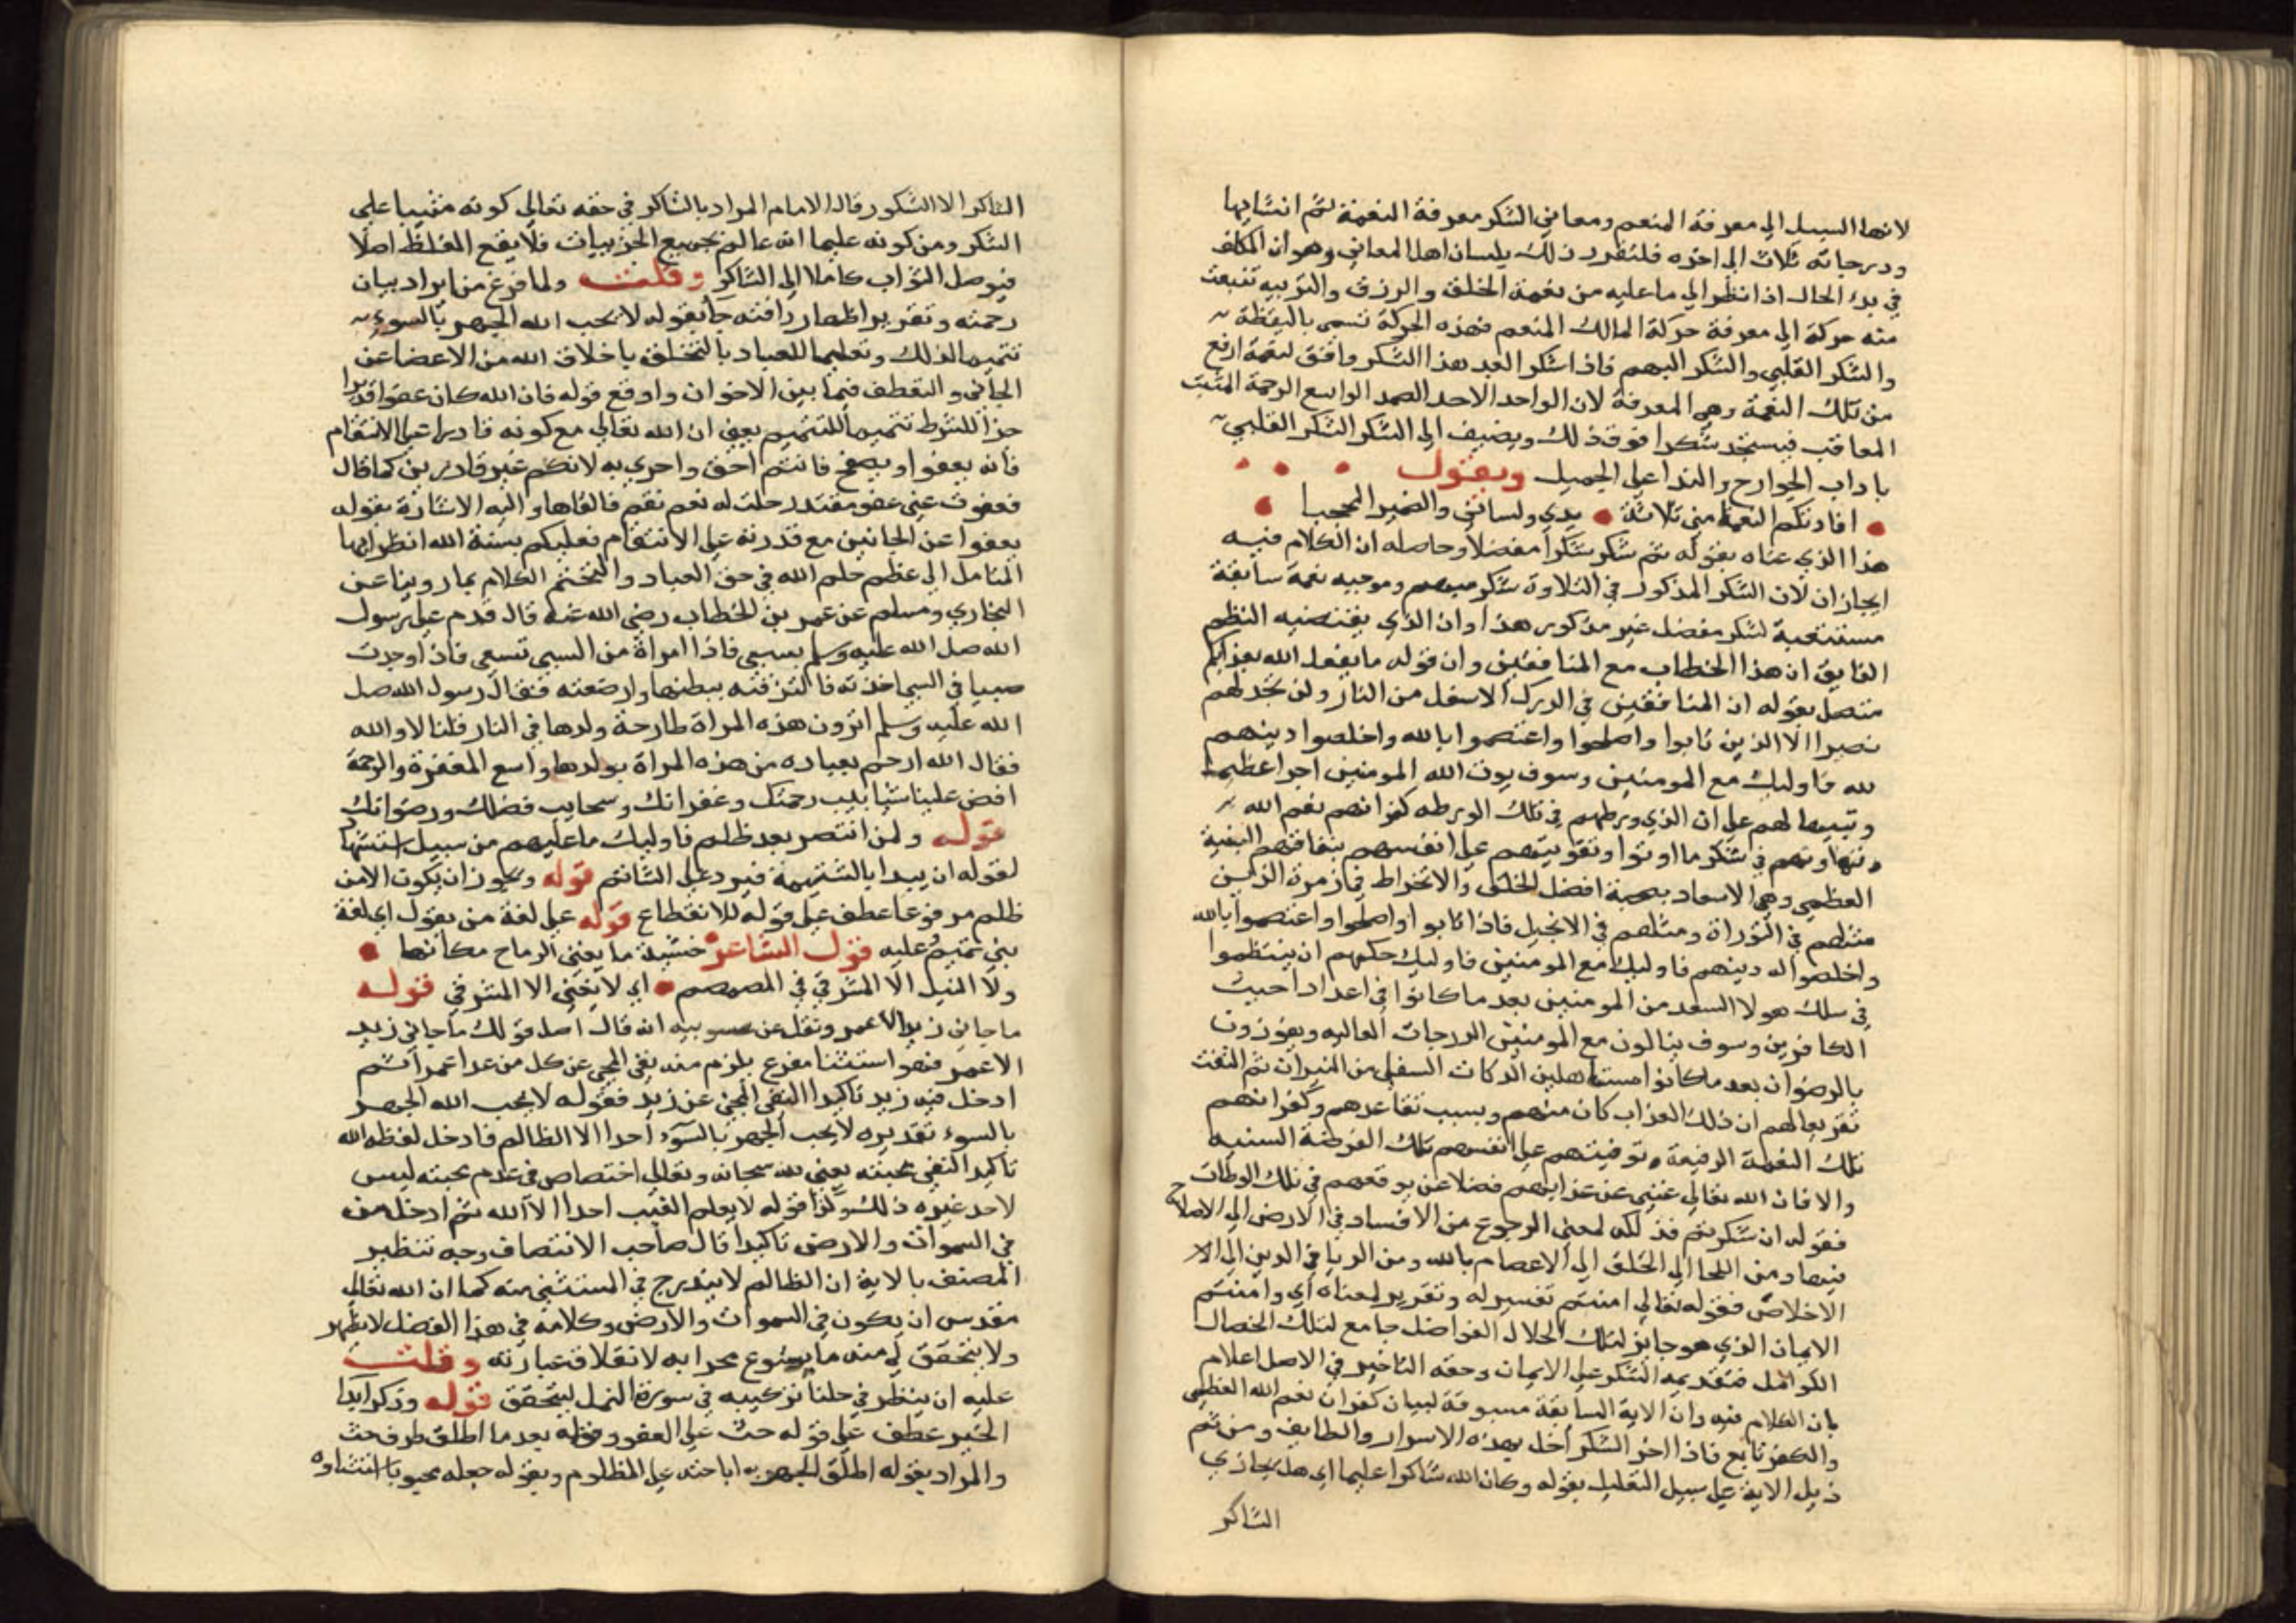 لانها السبيل الى معرفة المنعم ومعاني الشكر معرفة النعمة ثم انشابها
ودرجاته ثلاث الى اخره فلنقرر ذلك بلسان اهل المعاني وهو ان المكلف
في بدء الحال اذا نظر الى ما عليه من نعمة الخلق والرزق والتربيه تنبعث
منه حركة الى معرفة حركة المالك المنعم فهذه الحركة تسمى باليقظة
والشكر القلبي والشكر المبهم فاذا شكر العبد هذا الشكر وافق لنعمة ارفع
من تلك النعمة وهي المعرفة لان الواحد الاحد الصمد الواسع الرحمة المثيب
المعاقب فيستجد شكرا فوق ذلك ويضيف الى الشكر الشكر القلبي
باداب الجوارح والندا على الجميل ويقول
افادتكم النعماء مني ثلاثة يدي ولساني والضمير المحجبا
هذا الذي عناه بقوله ثم شكر شكرا مفصلا وحاصله ان الكلام فيه
ايجازان لان الشكر المذكور في التلاوة شكر مبهم وموجبه نعمة سابقة
مستتبعة لشكر مفصل غير مذكور هذا وان الذي يقتضيه النظم
الفايق ان هذا الخطاب مع المنافقين وان قوله ما يفعل الله بعذابكم
متصل بقوله ان المنافقين في الدرك الاسفل من النار ولن تجد لهم
نصيرا الا الذين تابوا واصلحوا واعتصموا بالله واخلصوا دينهم
لله فاوليك مع المومنين وسوف يوت الله المومنين اجرا عظيما
وتنبيها لهم على ان الذي ورطهم في تلك الورطه كفرانهم نعم الله
وتهاونهم في شكر ما اوتوا وتفويتهم على انفسهم بنفاقهم البغية
العظمى وهي الاسعاد بصحبة افضل الخلق والانخراط في زمرة الذين
مثلهم في التوراة ومثلهم في الانجيل فاذا تابوا واصلحوا واعتصموا بالله
واخلصوا له دينهم فاوليك مع المومنين فاوليك حكمهم ان ينتظموا
في سلك هولا السعد من المومنين بعد ما كانوا في اعداد احبيث
الكافرين وسوف ينالون مع المومنين الدرجات العاليه ويفوزون
بالرضوان بعد ما كانوا مستاهلين الدركات السفلى من النيران ثم التفت
تقريعا لهم ان ذلك العذاب كان منهم وبسبب تقاعدهم وكفرانهم
تلك النعمة الرفيعة وتوفيتهم على انفسهم تلك الفرصة السنيه
والا فان الله تعالى غني عن عذابهم فضلا عن يوقعهم في تلك الورطات
فقوله ان شكرتم فذلكه لمعنى الرجوع من الافساد في الارض الى الاصلاح
فيها ومن اللجا الى الخلق الى الاعصام بالله ومن الريا في الدين الى الا
الاخلاص فقوله تعالى امنتم تفسير له وتقرير لمعناه اي وامنتم
الايمان الذي هو جايز لتلك الخلال الفواضل جامع لتلك الخصال
الكوامل فتقديمه الشكر على الايمان وحقه التاخير في الاصل اعلام
بان الكلام فيه وان الاية السابقة مسبوقة لبيان كفران نعم الله العظمى
والكفر تابع فاذا اخر الشكر اخل بهذه الاسرار والطايف ومن ثم
ذيل الاية على سبيل التعليل بقوله وكان الله شاكرا عليما اي هل يجازي
الشاكر
الشاكر الا الشكور قال الامام المراد بالشاكر في حقه تعالى كونه مثيبا على
الشكر ومن كونه عليما انه عالم بجميع الجزييات فلا يقع الغلط اصلا
فيوصل الثواب كاملا الى الشاكر وقلت ولما فرغ من ايراد بيان
رحمته وتقرير اظهار رافته جا بقوله لا يحب الله الجهر بالسوء
تتميما لذلك وتعليما للعباد بالتخلق باخلاق الله من الاعضا عن
الجاني والتعطف فيما بين الاخوان واوقع قوله فان الله كان عفوا قديرا
جزا للشرط تتميما للتتميم يعني ان الله تعالى مع كونه قادرا على الانتقام
فانه يعفو او يصفح فانتم احق واحري به لانكم غير قادرين كما قال
فعفوت عني عفو مقتدر حلت له نعم نقم فالقاها واليه الاشارة بقوله
يعفوا عن الجانين مع قدرته على الانتقام فعليكم بسنة الله انظر ايها
المتامل الى عظم حلم الله في حق العباد والتختم الكلام بما روينا عن
البخاري ومسلم عن عمر بن الخطاب رضي الله عنه قال قدم على رسول
الله صل الله عليه وسلم بسبي فاذا امراة من السبي تسعى فاذا وجدت
صبيا في السبي اخذته فالزقته ببطنها وارضعته فقال رسول الله صل
الله عليه وسلم اترون هذه المراة طارحة ولدها في النار قلنا لا والله
فقال الله ارحم بعباده من هذه المراة بولدها واسع المغفرة والرحمة
افض علينا شابيب رحمتك وغفرانك وسحايب فضلك ورضوانك
قوله ولمن انتصر بعد ظلمه فاوليك ما عليهم من سبيل استشهاد
لقوله ان يبدا بالشتيمة فيرد على الشاتم قوله ويجوز ان يكون الا من
ظلم مرفوعا عطف على قوله للانقطاع قوله على لغة من يقول اي لغة
بني تميم عليه قول الشاعر خشية ما يغني الرماح مكانها
ولا النبل الا المشرفي في المصمم اي لا يغني الا المشرفي قوله
ما جاني زيد الا عمرو نقل عن سيبويه انه قال اصل قولك ما جاني زيد
الا عمر فهو استثنا مفرع يلزم منه نفي المجي عن كل من عدا عمرا ثم
ادخل فيه زيد تاكيدا النفي المجي عن زيد فقوله لا يحب الله الجهر
بالسوء تقديره لا يحب الجهر بالسوء احدا الا الظالم فادخل لفظه الله
تاكيد النفي محبته يعني لله سبحانه وتعالى اختصاص في عدم محبته ليس
لاحد غيره ذلك وكذا قوله لا يعلم الغيب احدا الا الله ثم ادخل من
في السموات والارض تاكيدا قال صاحب الانتصاف وجه تنظير
المصنف بالاية ان الظالم لا يندرج في المستثنى منه كما ان الله تعالى
مقدس ان يكون في السموات والارض وكلامه في هذا الفصل لا يظهر
ولا يتحقق لي منه ما يسوغ مجرابه لانغلاق عبارته وقلت
عليه ان ينظر في حلنا تركيبه في سورة النمل ليتحقق قوله وذكر ابدا
الخير عطف على قوله حث على العفو وقوله بعد ما اطلق ظرف حث
والمراد بقوله اطلق الجهر به اباحته على المظلوم وبقوله جعله محبوبا استثناوه